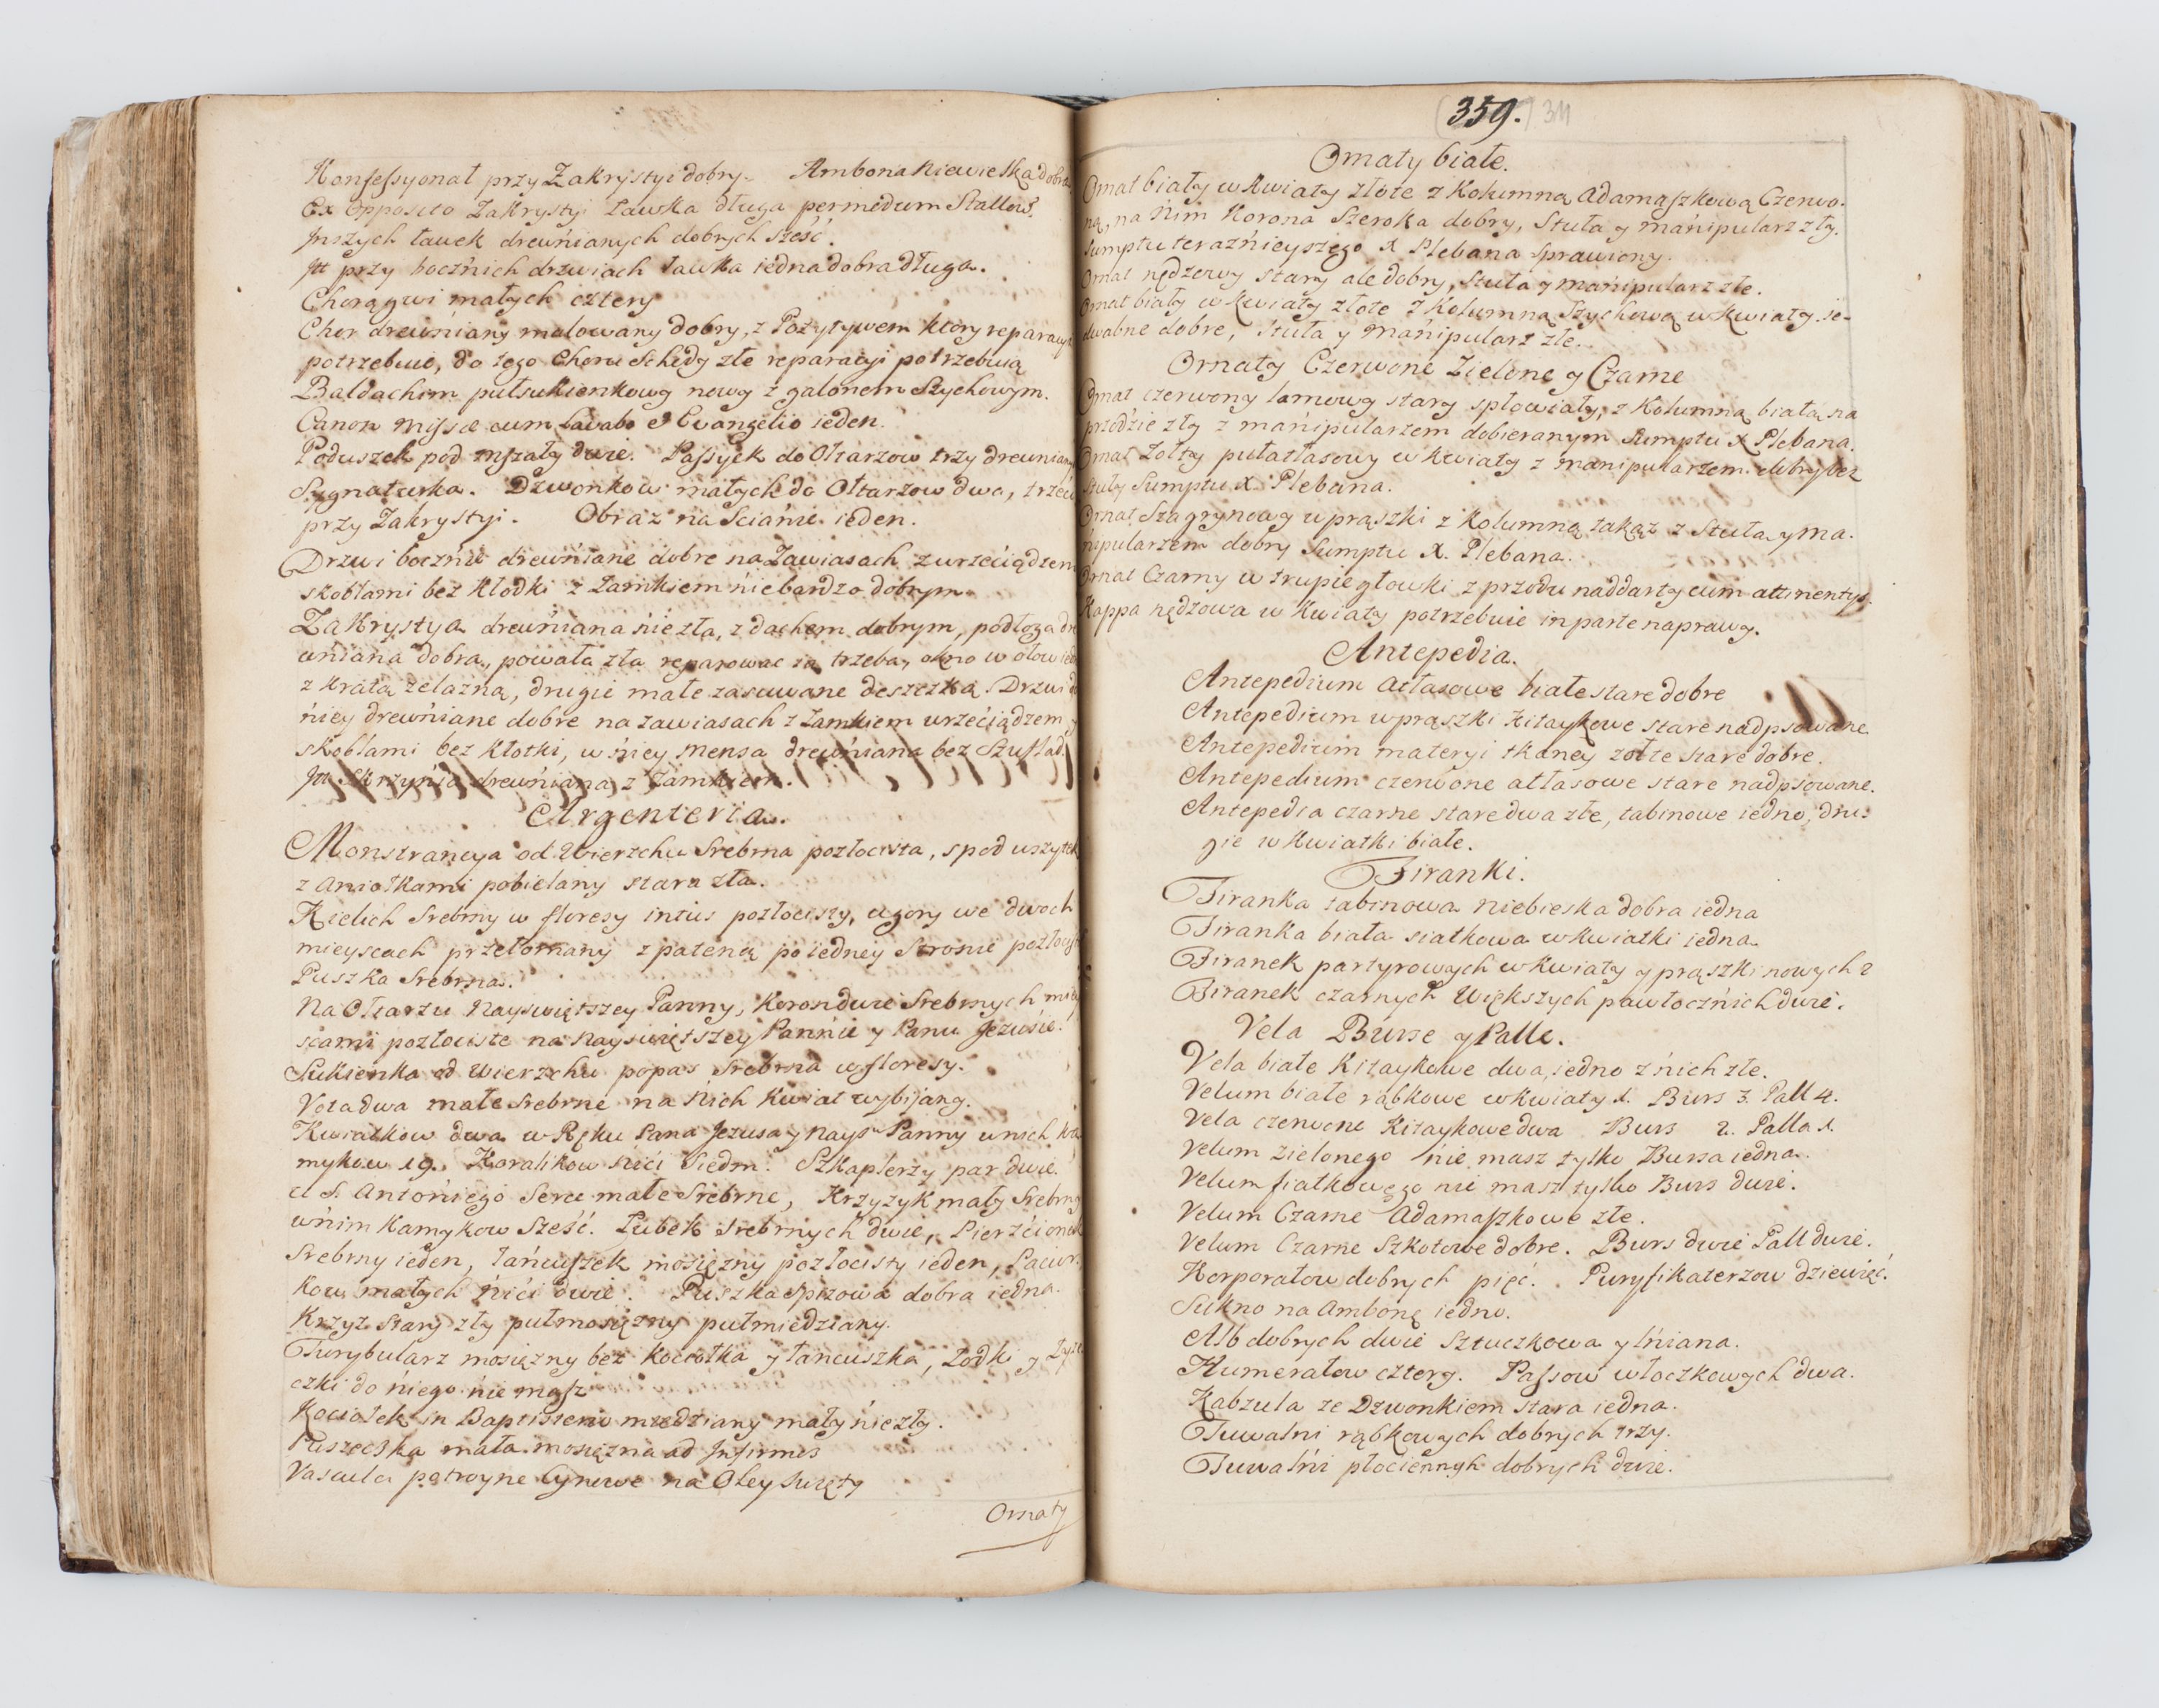 Konfessyonał przy Zakrystyi dobry. Ambona niewielka dobra
Ex opposito Zakrystyi Ławka długa per medium Stallow.
Jnszych ławek drewńianych dobrych sześć.
Jtt przy bocznich drzwiach Ławka iedna dobra długa.
Chorągwi małych cztery
Chor drewńiany malowany dobry, z Pozytywem ktory reparacyi
potrzebuie, do tego Choru Schody złe reparacyi potrzebuią
Baldachim pułsukienkowy nowy z galonem Szychowym.
Canon Missæ cum Lavabo et Evangelio ieden.
Poduszek pod mszały dwie. Passyek do Ołtarzow trzy drewniany
Sygnaturka. Dzwonkow małych do Ołtarzow dwa, trzeci
przy Zakrystyi. Obraz na Scianie ieden.
Drzwi boczńe drewńiane dobre na Zawiasach z wrzeciądzem
skoblami bez Kłodki z Zamkiem nie bardzo dobrym
Zakrystya drewńiana nie zła, z dachem dobrym, podłoga dre
wniana dobra, powała zła reparować ią trzeba, okno w ołow ied
z kratą żelazną, drugie małe zasuwane deszczką. Drzwi do
niey drewńiane dobre na zawiasach z Zamkiem wrzeciądzem y
skoblami bez kłotki, w niey Mensa drewńiana bez Szuflad
Jtt Skrzynia drewńiana z Zamkiem.
Argenteria.
Monstrancya od Wierzchu Srebrna pozłocista, spod wszytek
z Aniołkami pobielany stara zła.
Kielich Srebrny w floresy intus pozłocisty, u gory we dwoch
mieyscach przełomany z pateną po iedney Stronie pozłocist
Puszka Srebrna.
Na Ołtarzu Nayswiętszey Panny, Koron dwie Srebrnych miey
scami pozłociste na Nayswiętszey Pannie y Panu Jezusie.
Sukienka od Wierzchu po pas Srebrna w floresy.
Vota dwa małe srebrne na nich Kwiat wybijany.
Kwiatkow dwa w Ręku Pana Jezusa y Nays Panny w nich ka
mykow 19. Koralikow nici Siedm. Szkaplerzy par dwie.
U S. Antoniego Serce małe Srebrne, Krzyzyk mały Srebrny
w nim Kamykow Sześć. Lubek Srebrnych dwie, Pierzcionek
Srebrny ieden, łańcuszek mosiężny pozłocisty ieden, Pacior
kow małych nici dwie. Puszka spizowa dobra iedna.
Krzyz Stary zły pułmosiężny pułmiedziany.
Turybularz mosiężny bez kociołka y łancuszka, Łodki y Łyże
czki do niego nie masz
Kociołek in Baptisterio miedziany mały niezły.
Puszeczka mała mosiężna ad Jnfirmos
Vascula potroyne Cynowe na Oley Swięty
Ornaty
359. 311
Ornaty białe.
Ornat biały w kwiaty złote z Kolumną Adamaszkową Czerwo-
ną, na nim Korona Szeroka dobry, Stuła y mańipularz zły.
Sumptu teraźnieyszego X Plebana Sprawiony.
Ornat nędzowy stary ale dobry, Stuła y mańipularz złe.
Ornat biały w kwiaty złote z Kolumną Szychową w Kwiaty ie-
dwabne dobre, Stuła y Mańipularz złe.
Ornaty Czerwone Zielone y Czarne
Ornat czerwony lamowy stary spłowiały, z Kolumną białą na
przodzie zły z mańipularzem dobieranym Sumptu X Plebana.
Ornat Zołty pułatłasowy w kwiaty z manipularzem dobry bez
Stuły Sumptu X. Plebana.
Ornat Szagrynowy w prąszki z Kolumną takąż z Stułą y ma-
nipularzem dobry Sumptu X. Plebana.
Ornat Czarny w trupie głowki z przodu naddarty cum attinentys.
Kappa nędzowa w Kwiaty potrzebuie in parte naprawy.
Antepedia.
Antepedium Atłasowe białe stare dobre
Antepedium w prąszki Kitaykowe stare nadpsowane.
Antepedium materyi tkaney zołte stare dobre.
Antepedium czerwone atłasowe stare nadpsowane.
Antepedia czarne stare dwa złe, tabinowe iedno, dru-
gie w Kwiatki białe.
Firanki.
Firanka tabinowa niebieska dobra iedna
Firanka biała siatkowa w kwiatki iedna
Firanek partyrowych w Kwiaty y prąszki nowych 2
Firanek czarnych Większych pawłocznich dwie.
Vela Bursæ y Palle.
Vela białe Kitaykowe dwa, iedno z nich złe.
Velum białe rąbkowe w kwiaty 1. Burs 3. Pall 4.
Vela czerwone Kitaykowe dwa Burs 2. Palla 1.
Velum Zielonego nie masz tylko Bursa iedna.
Velum fiałkowego nie masz tylko Burs dwie.
Velum Czarne Adamaszkowe złe.
Velum Czarne Szkotowe dobre. Burs dwie Pall dwie.
Korporałow dobrych pięć. Puryfikaterzow dziewięć.
Sukno na Ambonę iedno.
Alb dobrych dwie Sztuczkowa y lniana.
Humerałow cztery. Passow włoczkowych dwa.
Kabzula ze Dzwonkiem stara iedna.
Tuwalni rąbkowych dobrych trzy.
Tuwalńi płociennych dobrych dwie.